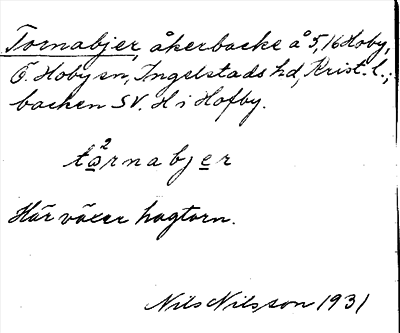 Tornabjer, åkerbacke å 5, 16 Hoby,
Ö. Hoby sn, Ingelstads hd, Krist. l.;
backen SV. H i Hofby.
tå²rnabjer
Här växer hagtorn.
Nils Nilsson 1931